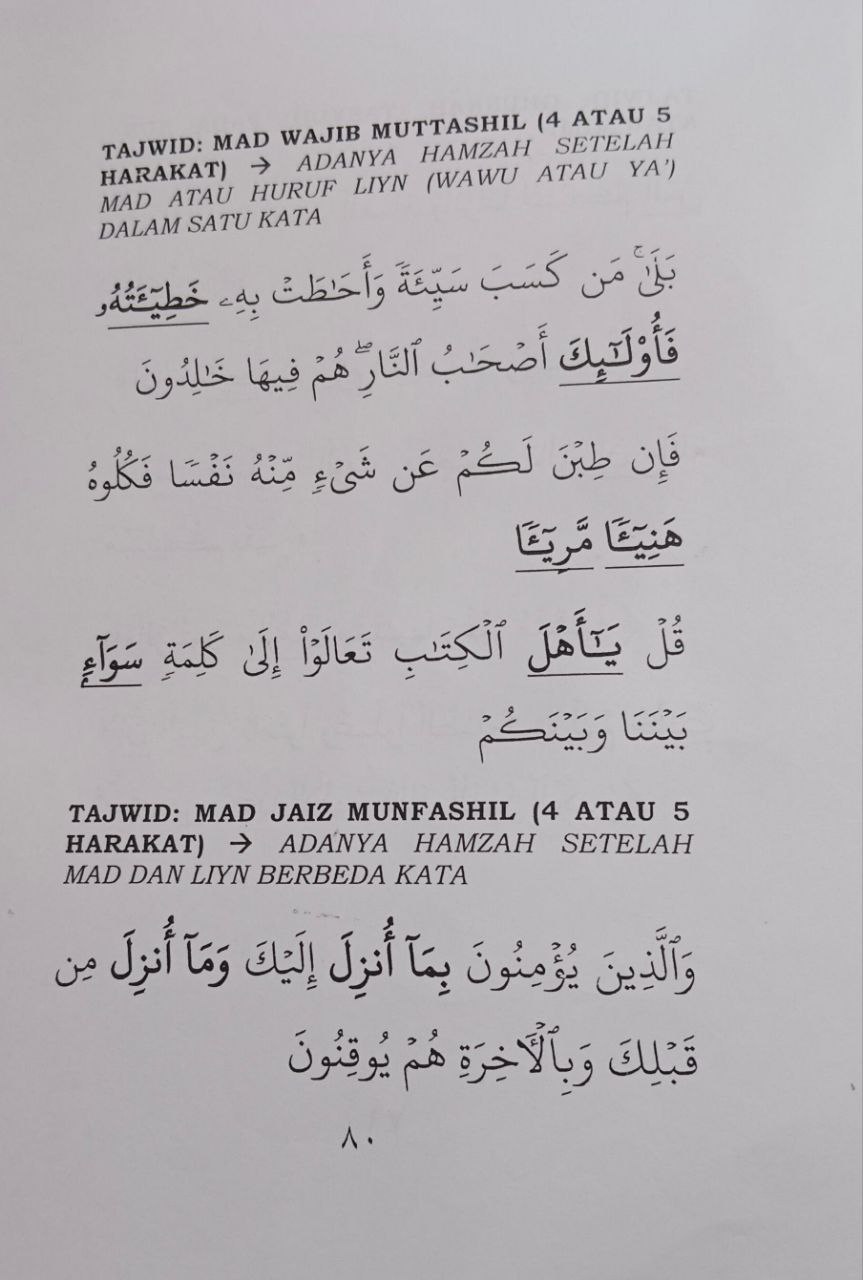 TAJWID: MAD WAJIB MUTTASHIL (4 ATAU 5
HARAKAT) → ADANYA HAMZAH SETELAH
MAD ATAU HURUF LIYN (WAWU ATAU YA’)
DALAM SATU KATA
بَلَىٰۚ مَن كَسَبَ سَيِّئَةً وَأَحَٰطَتْ بِهِۦ خَطِيٓـَٔتُهُۥ
فَأُوْلَٰٓئِكَ أَصْحَٰبُ ٱلنَّارِۖ هُمْ فِيهَا خَٰلِدُونَ
فَإِن طِبْنَ لَكُمْ عَن شَىْءٍ مِّنْهُ نَفْسًا فَكُلُوهُ
هَنِيٓـًٔا مَّرِيٓـًٔا
قُلْ يَٰٓأَهْلَ ٱلْكِتَٰبِ تَعَالَوْا۟ إِلَىٰ كَلِمَةٍ سَوَآءٍ
بَيْنَنَا وَبَيْنَكُمْ
TAJWID: MAD JAIZ MUNFASHIL (4 ATAU 5
HARAKAT) → ADANYA HAMZAH SETELAH
MAD DAN LIYN BERBEDA KATA
وَٱلَّذِينَ يُؤْمِنُونَ بِمَآ أُنزِلَ إِلَيْكَ وَمَآ أُنزِلَ مِن
قَبْلِكَ وَبِٱلْأَخِرَةِ هُمْ يُوقِنُونَ
٨٠